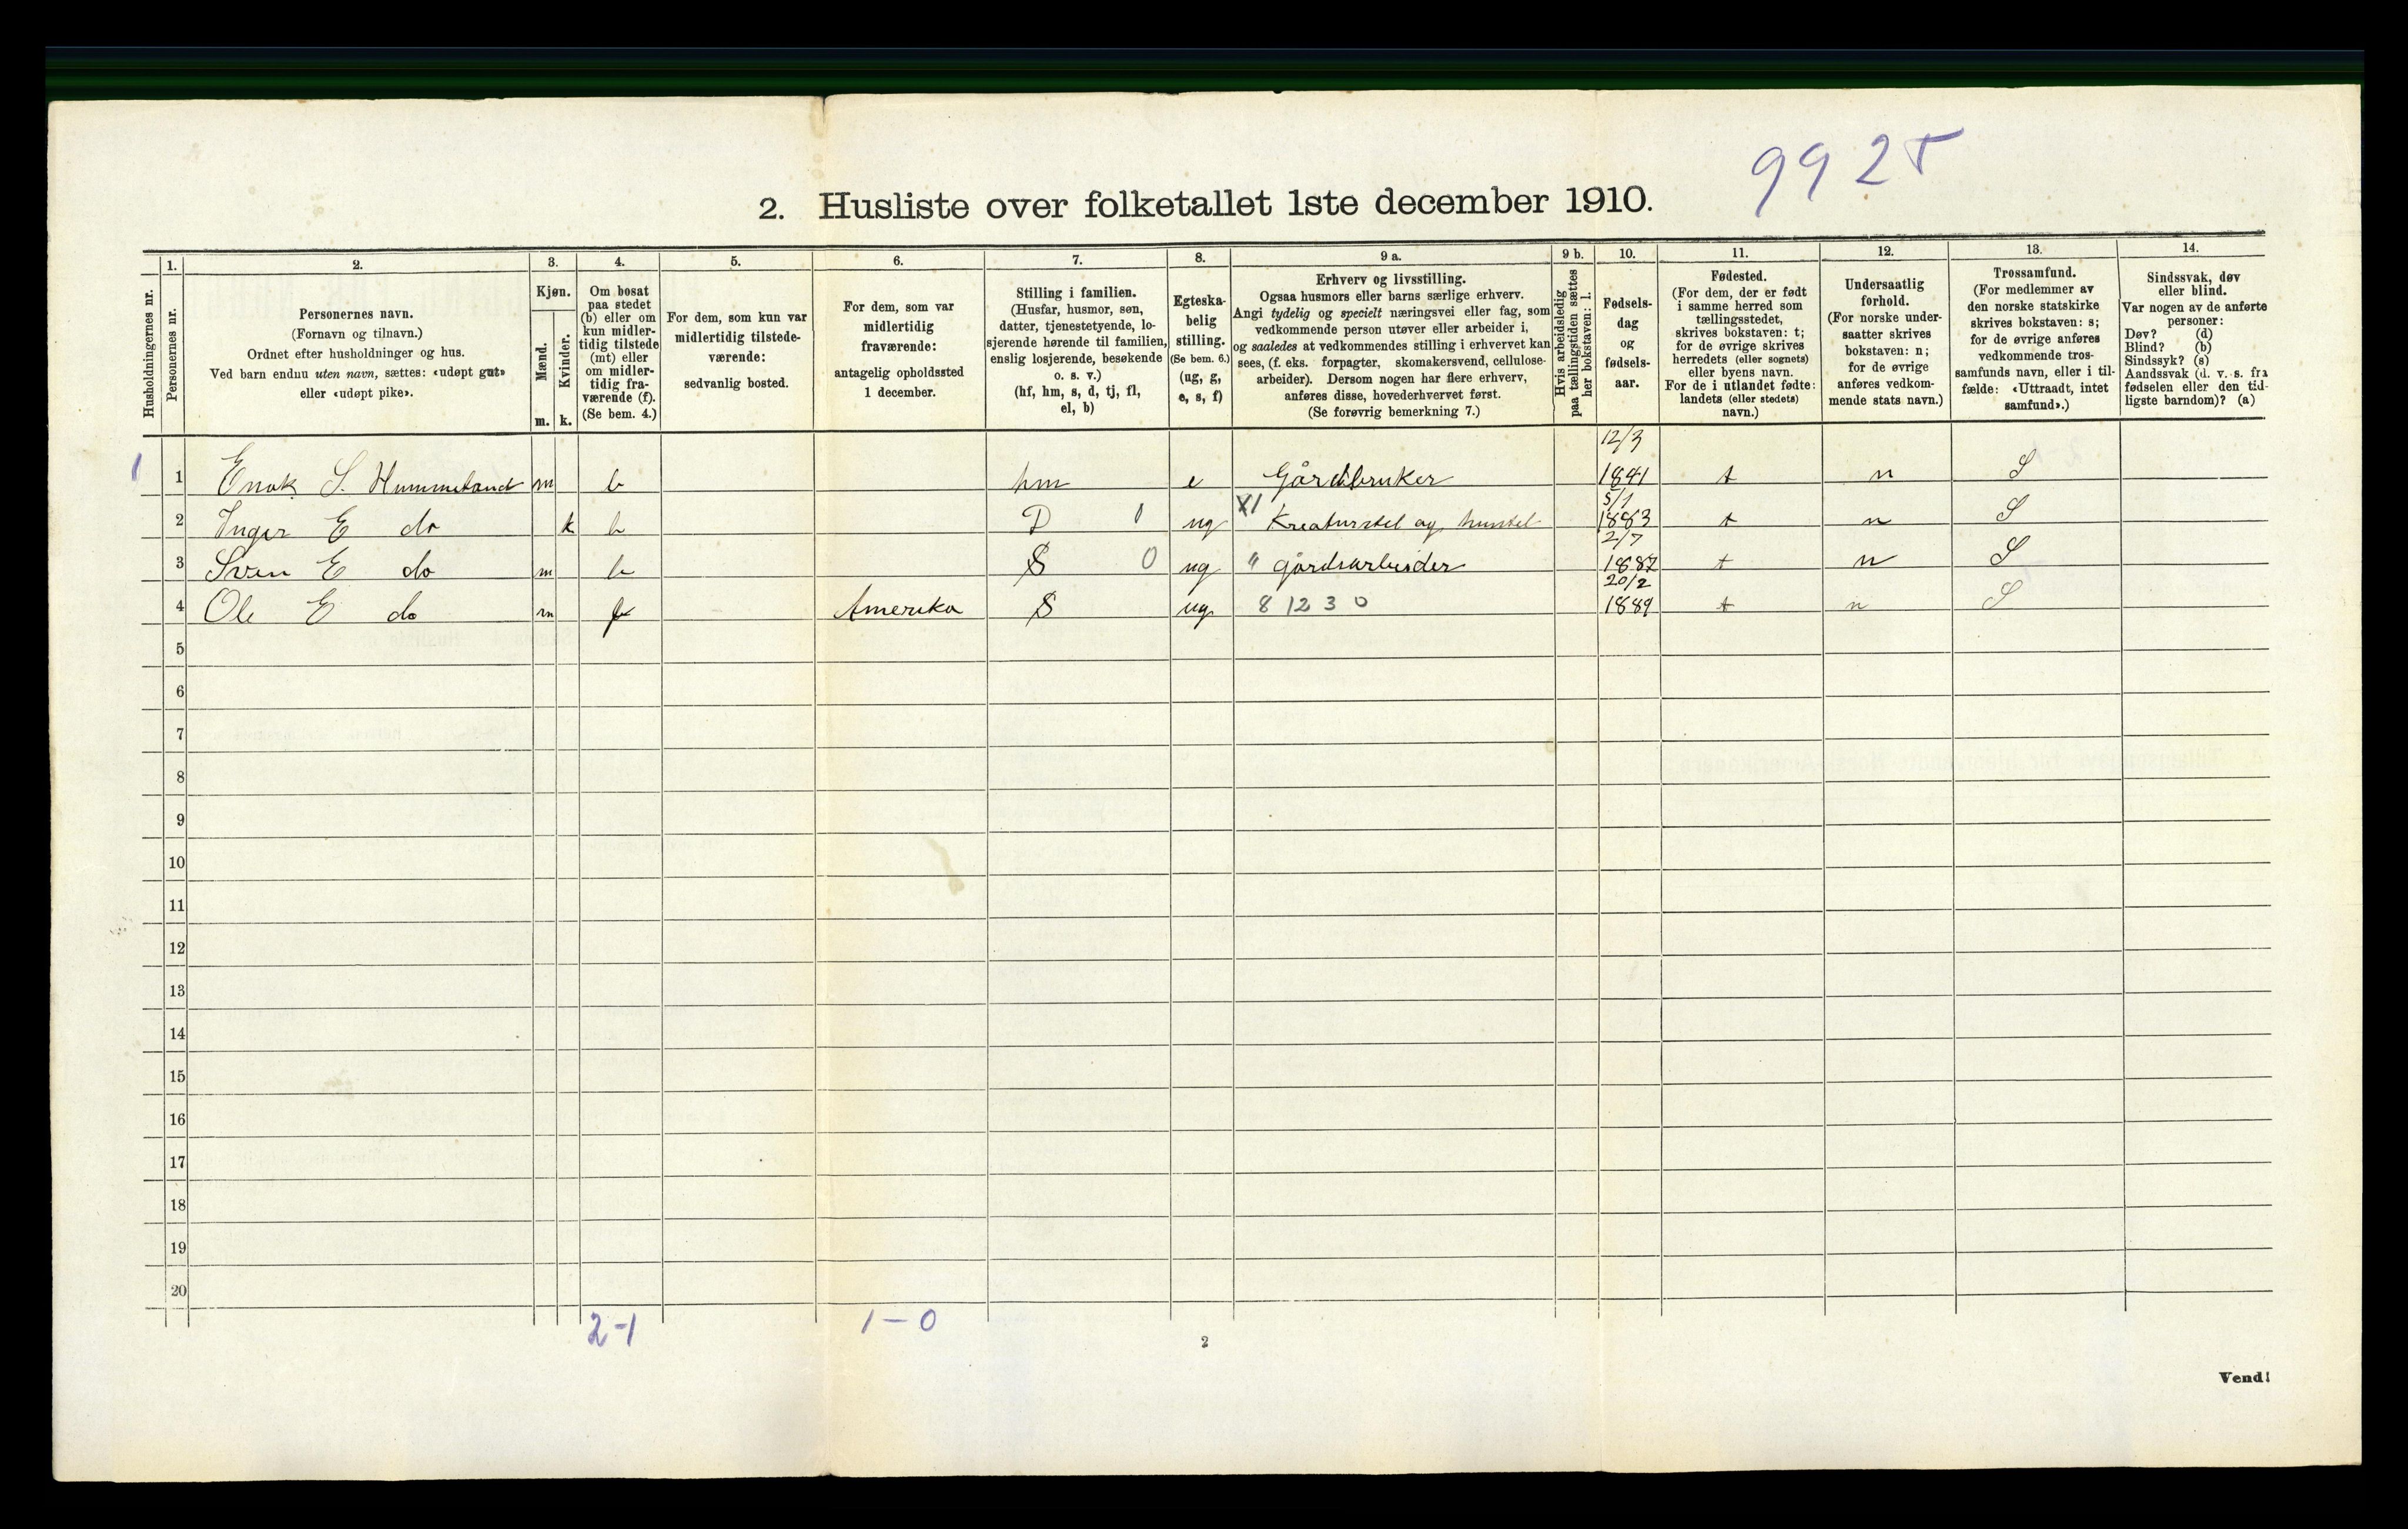 9925
2. Husliste over folketallet 1ste december 1910.
Husholdningernes nr.
1.
Personernes nr.
2.
Personernes navn.
(Fornavn og tilnavn.)
Ordnet efter husholdninger og hus.
Ved barn endnu uten navn, sættes: «udøpt gut»
eller «udøpt pike».
3.
Kjøn.
Mænd.
Kvinder.
m. k.
4.
Om bosat
paa stedet
(b) eller om
kun midler-
tidig tilstede
(mt) eller
om midler-
tidig fra-
værende (f).
(Se bem. 4.)
5.
For dem, som kun var
midlertidig tilstede-
værende:
sedvanlig bosted.
6.
For dem, som var
midlertidig
fraværende:
antagelig opholdssted
1 december.
7.
Stilling i familien.
(Husfar, husmor, søn,
datter, tjenestetyende, lo-
sjerende hørende til familien,
enslig losjerende, besøkende
o. s. v.)
(hf, hm, s, d, tj, fl,
el, b)
8.
Egteska-
belig
stilling.
(Se bem. 6.)
(ug, g,
e, s, f)
9 a.
Erhverv og livsstilling.
Ogsaa husmors eller barns særlige erhverv.
Angi tydelig og specielt næringsvei eller fag, som
vedkommende person utøver eller arbeider i,
og saaledes at vedkommendes stilling i erhvervet kan
sees, (f. eks. forpagter, skomakersvend, cellulose-
arbeider). Dersom nogen har flere erhverv,
anføres disse, hovederhvervet først.
(Se forøvrig bemerkning 7.)
9 b.
Hvis arbeidsledig
paa tællingstiden sættes
her bokstaven: l.
10.
Fødsels-
dag
og
fødsels-
aar.
11.
Fødested.
(For dem, der er født
i samme herred som
tællingsstedet,
skrives bokstaven: t;
for de øvrige skrives
herredets (eller sognets)
eller byens navn.
For de i utlandet fødte:
landets (eller stedets)
navn.)
12.
Undersaatlig
forhold.
(For norske under-
saatter skrives
bokstaven: n;
for de øvrige
anføres vedkom-
mende stats navn.)
13.
Trossamfund.
(For medlemmer av
den norske statskirke
skrives bokstaven: s;
for de øvrige anføres
vedkommende tros-
samfunds navn, eller i til-
fælde: «Uttraadt, intet
samfund».)
14.
Sindssvak, døv
eller blind.
Var nogen av de anførte
personer:
Døv? (d)
Blind? (b)
Sindssyk? (s)
Aandssvak (d. v. s. fra
fødselen eller den tid-
ligste barndom)? (a)
12/3
1 1 Enok S. Hummeland m b hm e Gårdbruker 1841 t n S
5/1
2 Inger E do k b D 0 ug XI Kreaturstel og husstel 1883 t n S
2/7
3 Sven E do m b S 0 ug " gårdsarbeider 1887 t n S
20/2
4 Ole E do m f Amerika S ug 8 12 3 0 1889 t n S
5
6
7
8
9
10
11
12
13
14
15
16
17
18
19
20
2-1 1-0
2
Vend!